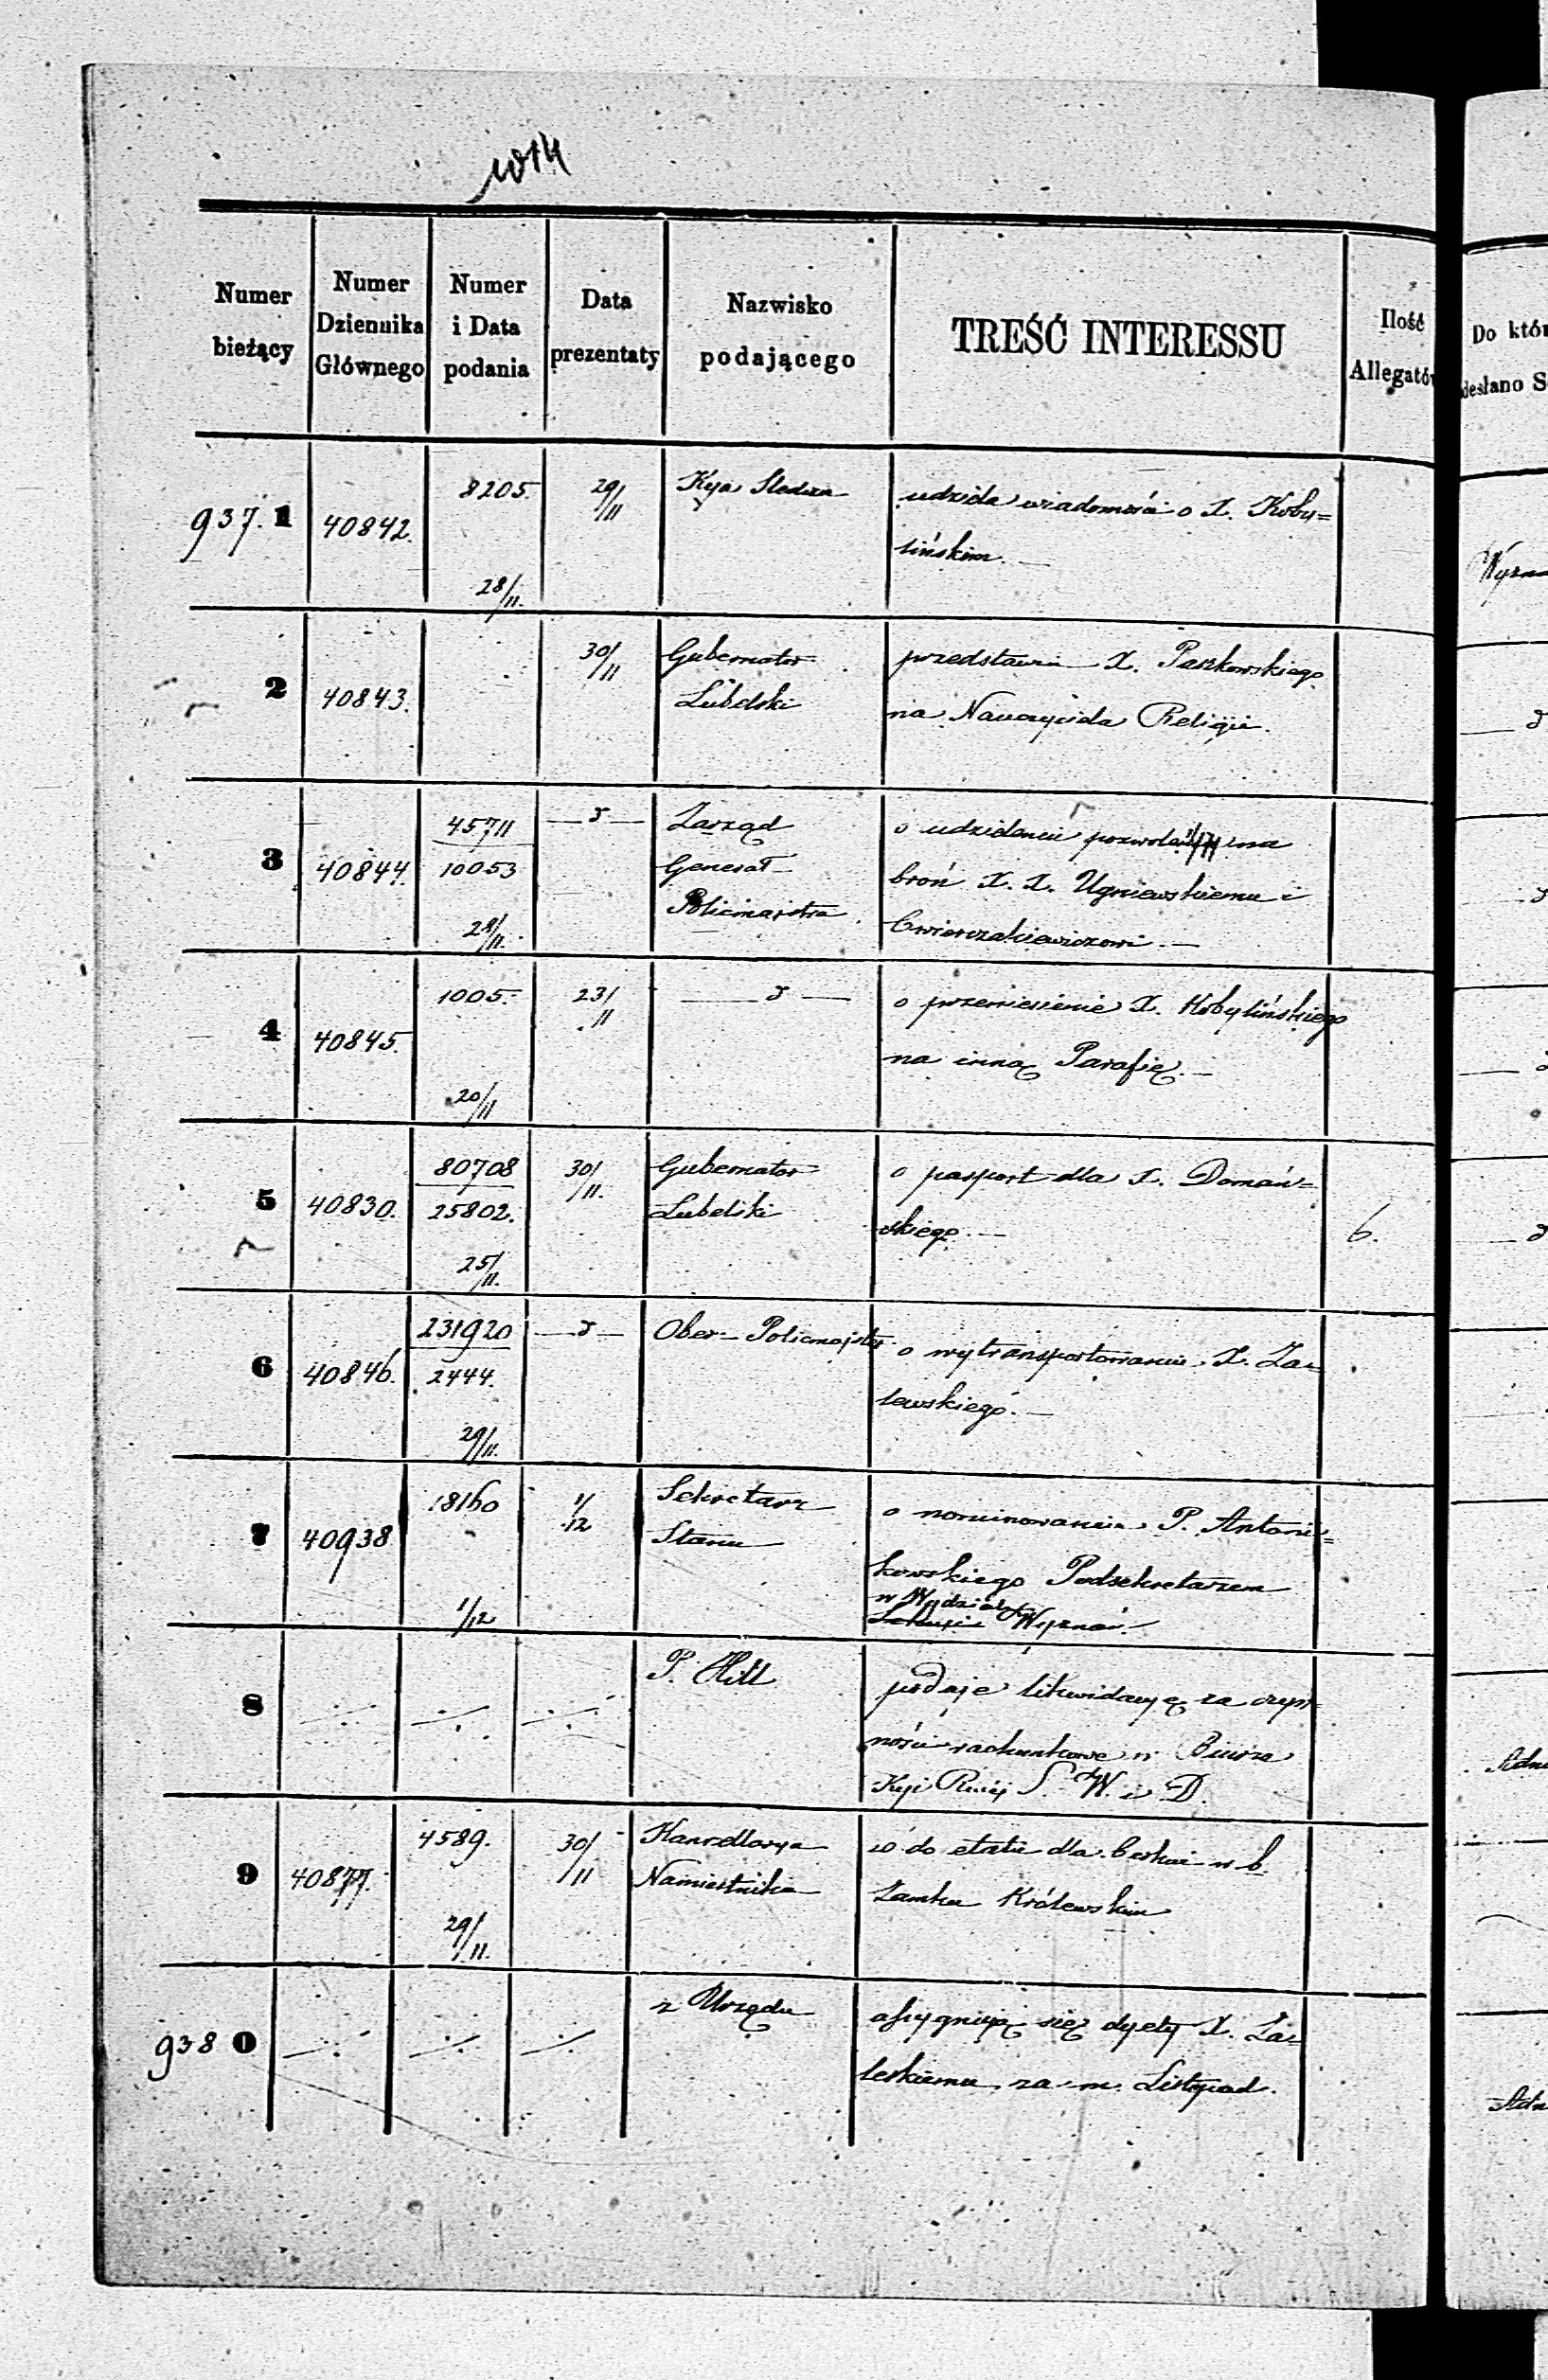 1014
Numer bieżący
Numer Dziennika Głównego
Numer i Data podania
Data prezentaty
Nazwisko podającego
TREŚĆ INTERESSU
Ilość
Allegatów
Do któr
desłano S
937.1 40842. 8205. 28/11. 29/11 Kya Śledcza udziela wiadomości o X. Koby=
lińskim. —
Wyzna
2 40843. 30/11 Gubernator przedstawia X. Paszkowskiego
Lubelski na Nauczyciela Religii.
3 40844. 45711 — d — Zarząd o udzielenie pozwoleń na
10053 Generał- broń X. X. Ugniewskiemu i
28/11. Policmajstra Cwierczakiewiczowi. —
4 40845. 1005. 23/11 — d — o przeniesienie X. Kobylińskiego
20/11 na inną Parafię. —
5 40830. 80708 30/11. Gubernator o pasport dla X. Domań=
25802. Lubelski skiego. — 6.
25/11.
6 40846. 231920 — d — Ober-Policmajster o wytransportowanie X. Za=
2444. lewskiego. —
29/11.
7 40938 18160 1/12 Sekretarz o nominowanie P. Antoni=
Stanu kowskiego Podsekretarzem
1/12 w Wydziale
Sekcyi Wyznań.
8 ./. ./. ./. P. Hill podaje likwidacyę za czyn=
ności rachunkowe w Biurze
Kyi Rząj S. W. i D.
9 40877. 4589. 30/11 Kancellarya co do etatu dla Cerkwi w b.
29/11. Namiestnika Zamku Królewskim
938 0 ./. ./. ./. z Urzędu assygnują się dyety X. Za=
leskiemu za m. Listopad.